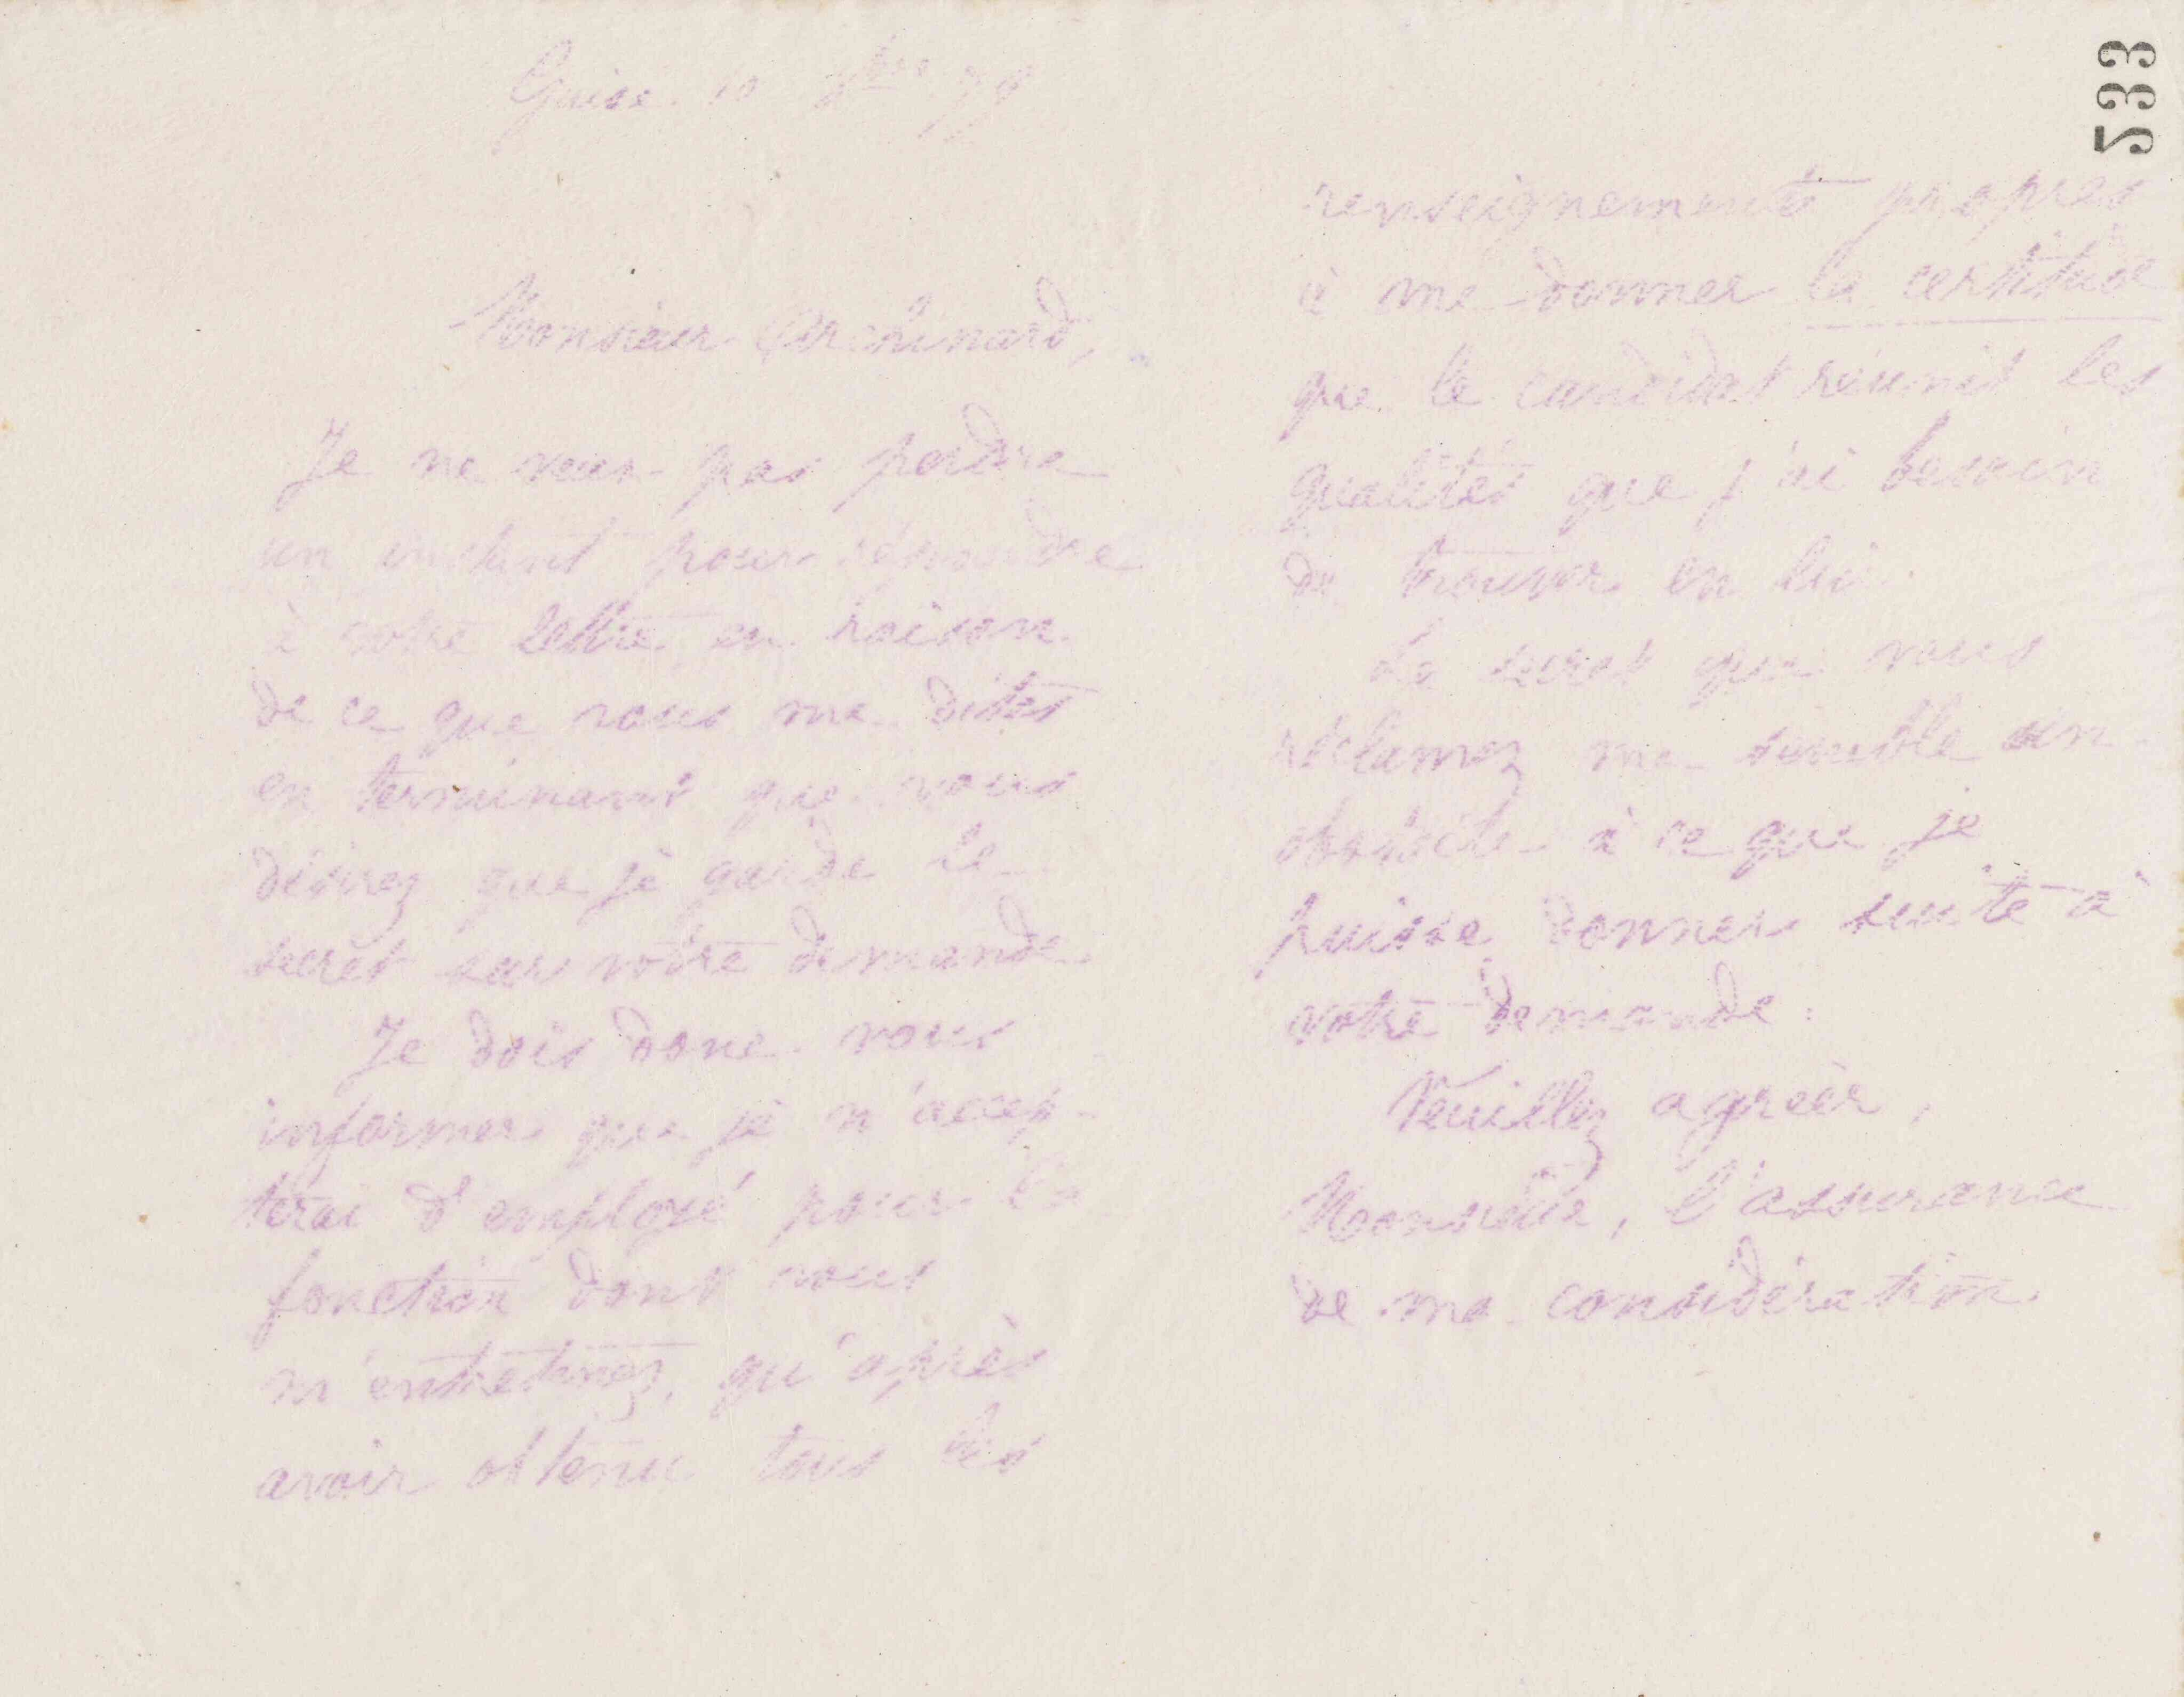 533
Guise 10 9bre 79
Monsieur Archinard,
Je ne veux pas perdre
un instant pour répondre
à votre lettre en raison
de ce que vous me dites
en terminant que vous
désirez que je garde le
secret sur votre demande.
Je dois donc vous
informer que je n'accep-
terai d'employé pour la
fonction dont vous
m'entretenez, qu'après
avoir obtenu tous les
renseignements propres
à me donner la certitude
que le candidat réunit les
qualités que j'ai besoin
de trouver en lui.
Le secret que vous
réclamez me semble un
obstacle à ce que je
puisse donner suite à
votre demande.
Veuillez agréer,
Monsieur, l'assurance
de ma considération